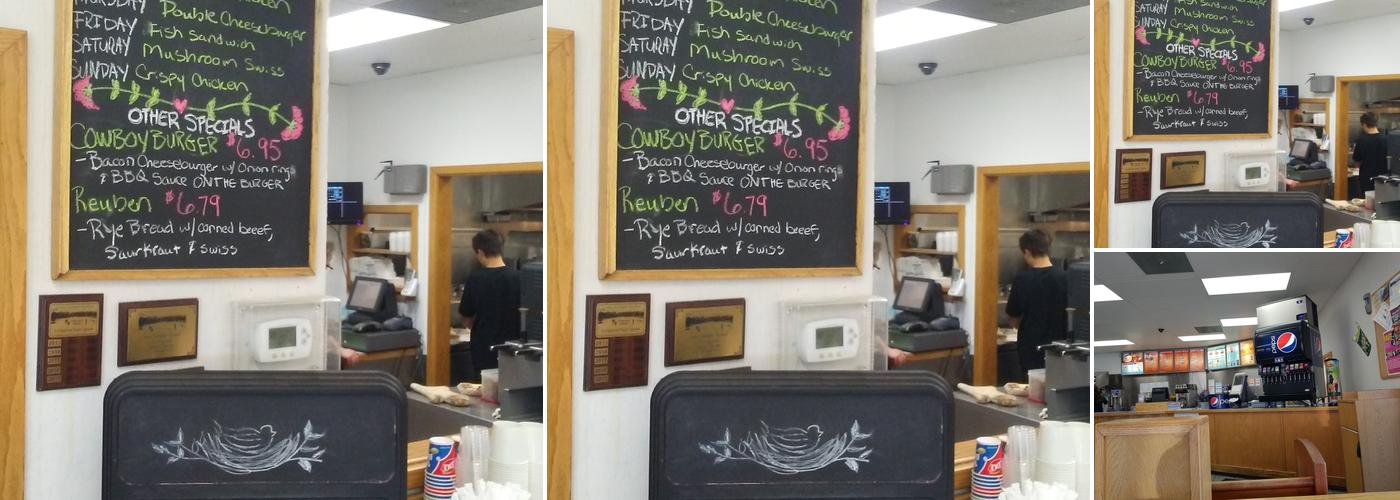 FRIDAY Double Cheeseburger
SATURAY Fish Sandwich
Mushroom Swiss
SUNDAY Crispy Chicken
OTHER SPECIALS
COWBOY BURGER $6.95
-Bacon Cheeseburger w/ Onion rings
& BBQ Sauce ON THE BURGER
Reuben $6.79
-Rye Bread w/ corned beef,
Saurkraut & Swiss
FRIDAY Double Cheeseburger
SATURAY Fish Sandwich
Mushroom Swiss
SUNDAY Crispy Chicken
OTHER SPECIALS
COWBOY BURGER $6.95
-Bacon Cheeseburger w/ Onion rings
& BBQ Sauce ON THE BURGER
Reuben $6.79
-Rye Bread w/ corned beef,
Saurkraut & Swiss
SATURAY
Mushroom Swiss
SUNDAY Crispy Chicken
OTHER SPECIALS
COWBOY BURGER $6.95
-Bacon Cheeseburger w/ Onion rings
& BBQ Sauce ON THE BURGER
Reuben $6.79
-Rye Bread w/ corned beef,
Saurkraut & Swiss
pepsi